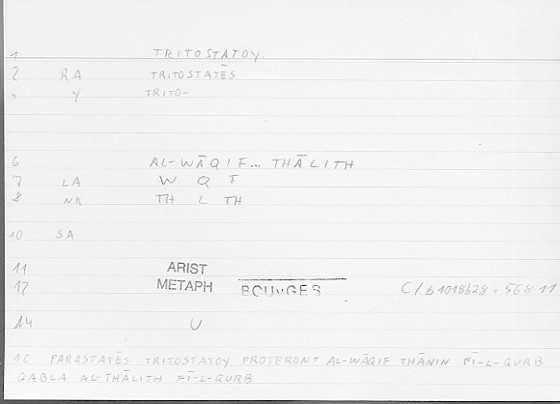 1 TRITOSTATOY.
2 RA TRITOSTATĒS
3 Y TRITO-
6 AL-WĀQIF... THĀLITH
7 LA W Q F
8 NK TH L TH
10 SA
11 ARIST
12 METAPH BOUYGES C/b1018b28=568.11
14 U
16 PARASTATĒS TRITOSTATOY PROTERON= AL-WĀQIF THĀNIN FĪ-L-QURB
QABLA AL-THĀLITH FĪ-L-QURB